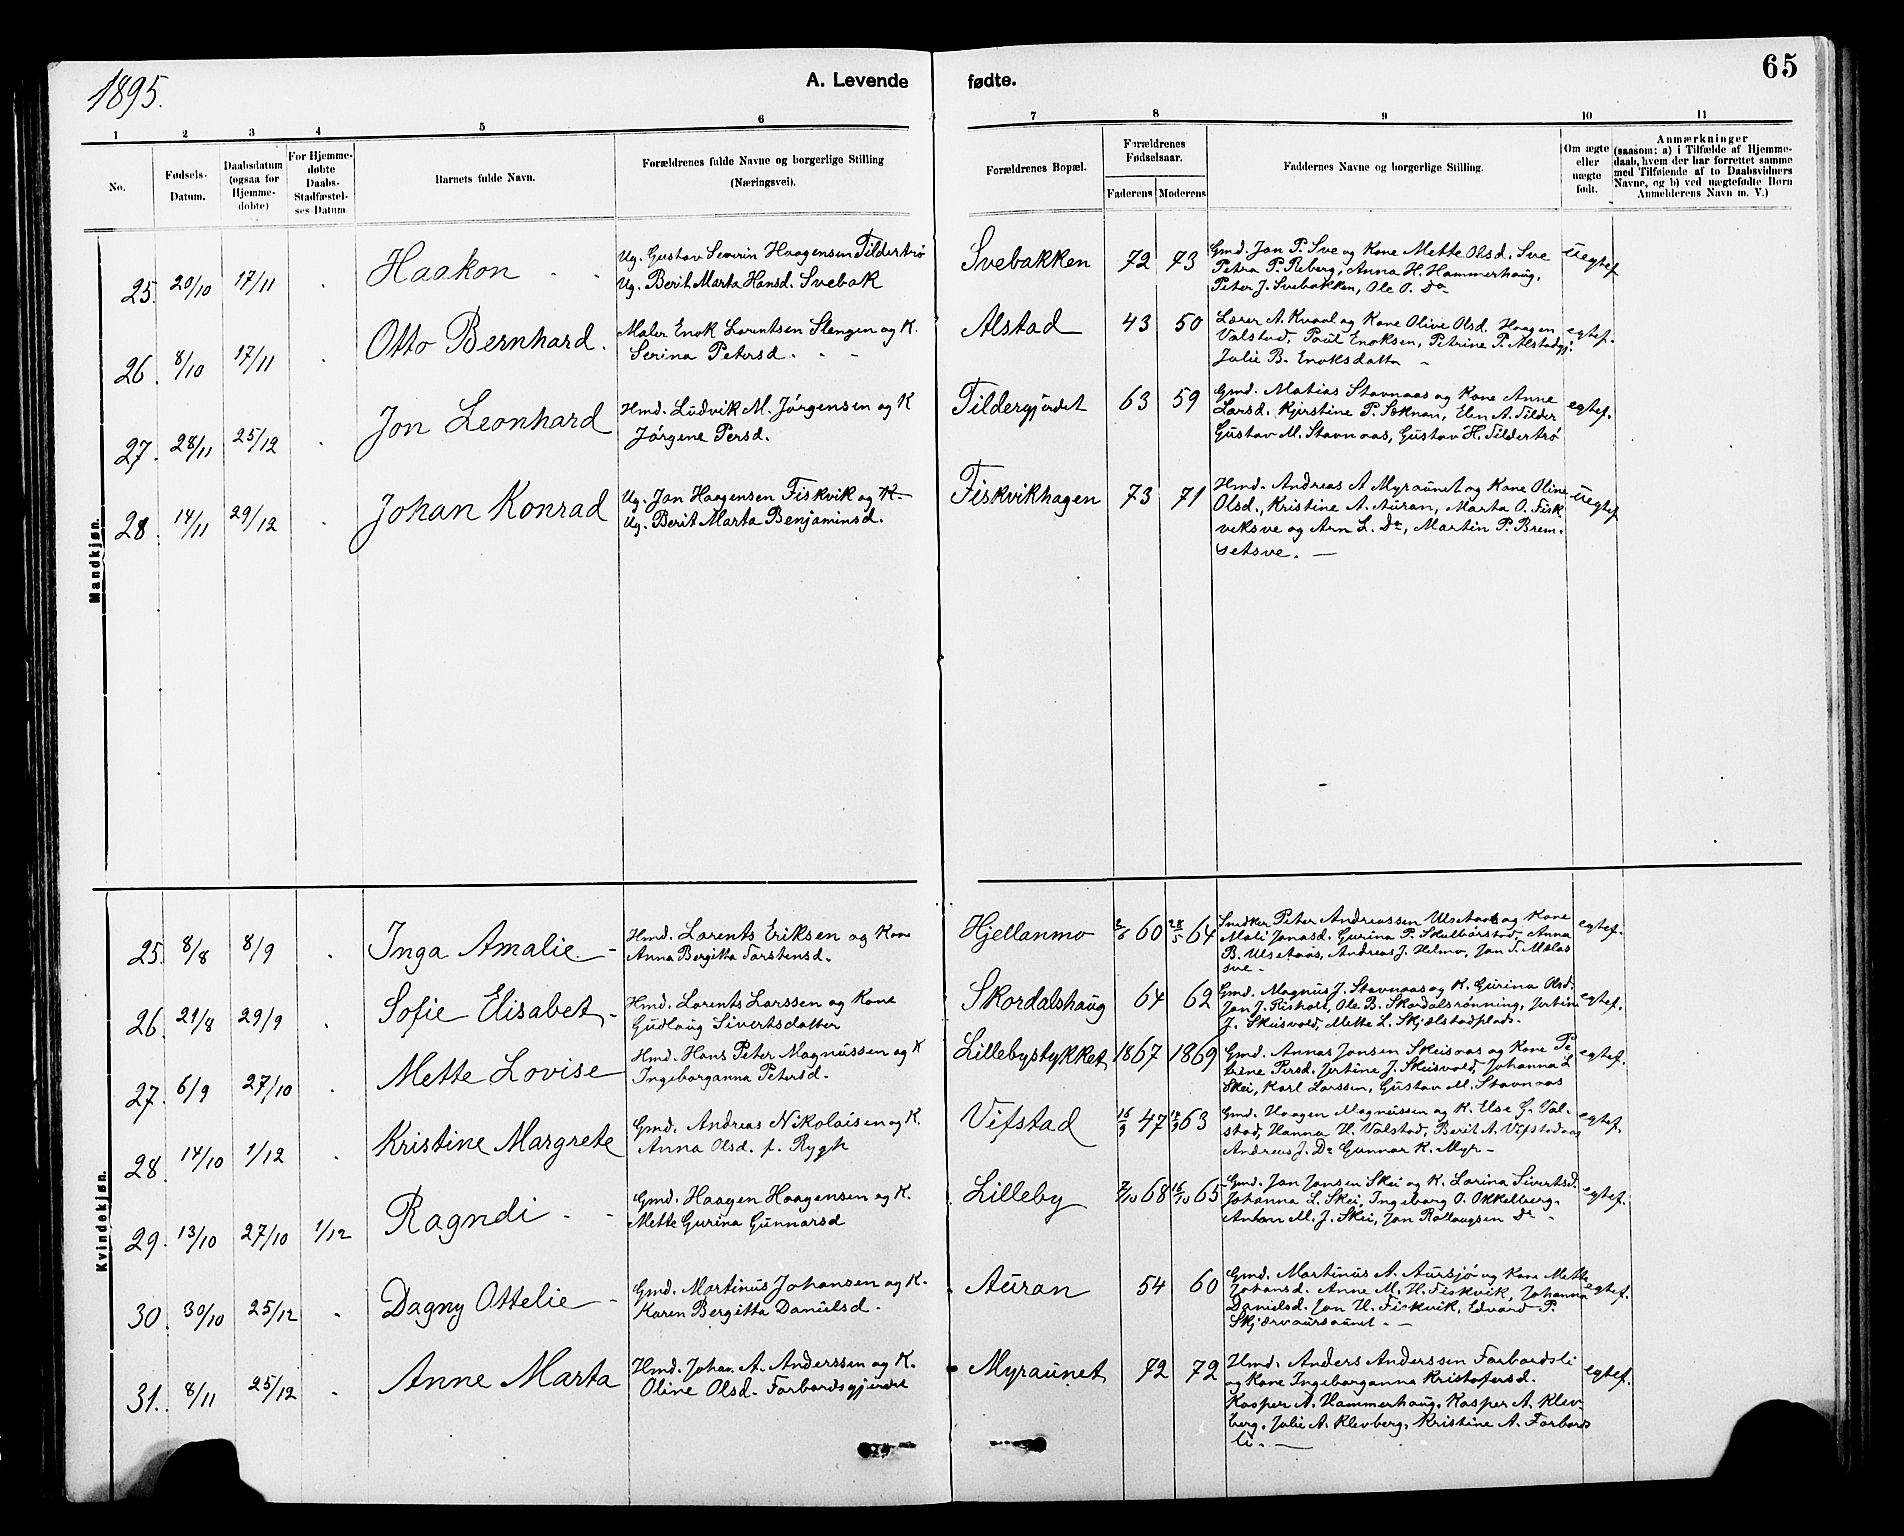 1895.
A. Levende
fødte.
65
1
2
3
4
5
6
7
8
9
10
11
No.
Fødsels-
Datum.
Daabsdatum
(ogsaa for
Hjemme-
døbte)
For Hjemme-
døbte
Daabs-
Stadfæstel-
ses-Datum.
Barnets fulde Navn.
Forældrenes fulde Navne og borgerlige Stilling
(Næringsvei).
Forældrenes Bopæl.
Forældrenes
Fødselsaar.
Faderens
Moderens
Faddernes Navne og borgerlige Stilling.
Om ægte
eller
uægte
født.
Anmærkninger
(saasom: a) i Tilfælde af Hjemme-
daab, hvem der har forrettet samme
med Tilføiende af to Daabsvidners
Navne, og b) ved uægtefødte Børn
Anmelderens Navn m. V.)
Mandkjøn.
25. 20/10 17/11 Haakon
Ug. Gustav Severin Haagensen Tildertrø
Ug. Berit Marta Hansd. Svebak
Svebakken 72 73
Gmd. Jon P. Sve og Kone Mette Olsd. Sve
Petra P. Reberg, Anna H. Hammerhaug,
Peter J. Svebakken, Ole O. Do
Uegtef
26. 8/10 17/11 Otto Bernhard.
Maler Enok Lorentsen Slengen og K.
Serina Petersd.
Alstad 43 50
Lærer A. Kvaal og Kone Olive Olsd. Haagen
Valstad, Paul Enoksen, Petrine P. Alstadgj.
Julie B. Enoksdattr
egtef.
27. 28/11 25/12 Jon Leonhard
Hmd. Ludvik M. Jørgensen og K
Jørgene Persd.
Tildergjerdet 63 59
Gmd. Matias Stavnaas og Kone Anne
Larsd. Kjerstine P. Soknan, Elen A. Tilder
Gustav M. Stavnaas, Gustav H. Tildertrø
egtef.
28. 14/11 29/12 Johan Konrad
Ug. Jon Haagensen Fiskvik og K.
Ug. Berit Marta Benjaminsd.
Fiskvikhagen 73 71
Hmd. Andreas A Myraunet og Kone Oline
Olsd., Kristine A. Auran, Marta O. Fisk-
veksve og Arn L. Do, Martin P. Brem-
setsve.
Uegtef
Kvindekjøn.
25. 8/8 8/9 Inga Amalie
Hmd. Lorents Eriksen og Kone
Anna Bergitta Torstensd.
Hjellanmo 2/6 60 28/5 64
Snedker Peter Andreassen Ulsetaas og Kone
Mali Jonasd. Gurina P. Skulbørstad, Anna
B. Ulsetaas, Andreas J. Helmo, Jon T. Mælas
sve
egtef.
26. 21/8 29/9 Sofie Elisabet
Hmd. Lorents Larssen og Kone
Gudlaug Sivertsdatter
Skordalshaug 64 62
Gmd. Magnus J. Stavnaas og K. Gurina Olsd.
Jon J. Fishall, Ole B. Skordalsrønning, Jertine
J. Skeisvold, Mette L. Skjælstadplads.
egtef.
27. 6/9 27/10 Mette Lovise
Hmd. Hans Peter Magnussen og K
Ingeborganna Petersd.
Lillebystykket 1867 1869
Gmd. Annas Jonsen Skeisaas og Kone Pe
trine Persd. Jertine J. Skeisvold, Johanna L
Skei, Karl Larssen, Gustav M. Stavnaas
egtef.
28. 14/10 1/12 Kristine Margrete
Gmd. Andreas Nikolaisen og K.
Anna Olsd. f. Rygh
Vifstad 16/9 47 63
Gmd. Haagen Magnussen og K. Else G. Val-
stad, Hanna H. Valstad, Berit A. Vifstadaas
Andreas J. Do Gunnar K. Myr
egtef.
29. 13/10 27/10 1/12 Ragndi
Gmd. Haagen Haagensen og K.
Mette Gurina Gunnarsd
Lilleby 2/10 68 16/10 65
Gmd. Jon Jonsen Skei og K. Lorina Sivertsd.
Johanna L. Skei, Ingeborg O. Okkelberg.
Anton M. J. Skei, Jon Rollaugsen Do
egtef.
30. 30/10 25/12 Dagny Ottelie
Gmd. Martinus Johansen og K.
Karen Bergitta Danielsd.
Auran 54 60
Gmd. Martinus A. Aursjø og Kone Mette
Johansd. Anne M. H. Fiskvik, Johanna
Danielsd. Jon H. Fiskvik, Edvard P.
Skjærvaursaunet.
egtef.
31. 8/11 25/12 Anne Marta
Hmd. Johan A. Anderssen og K.
Oline Olsd. Forbordsgjerdet
Myraunet 72 72
Hmd. Anders Anderssen Forbordsli
og Kone Ingeborganna Kristofersd.
Kasper A. Hammerhaug, Kasper A. Klev-
berg, Julie A. Klevberg, Kristine A. Forbords
li.
egtef.